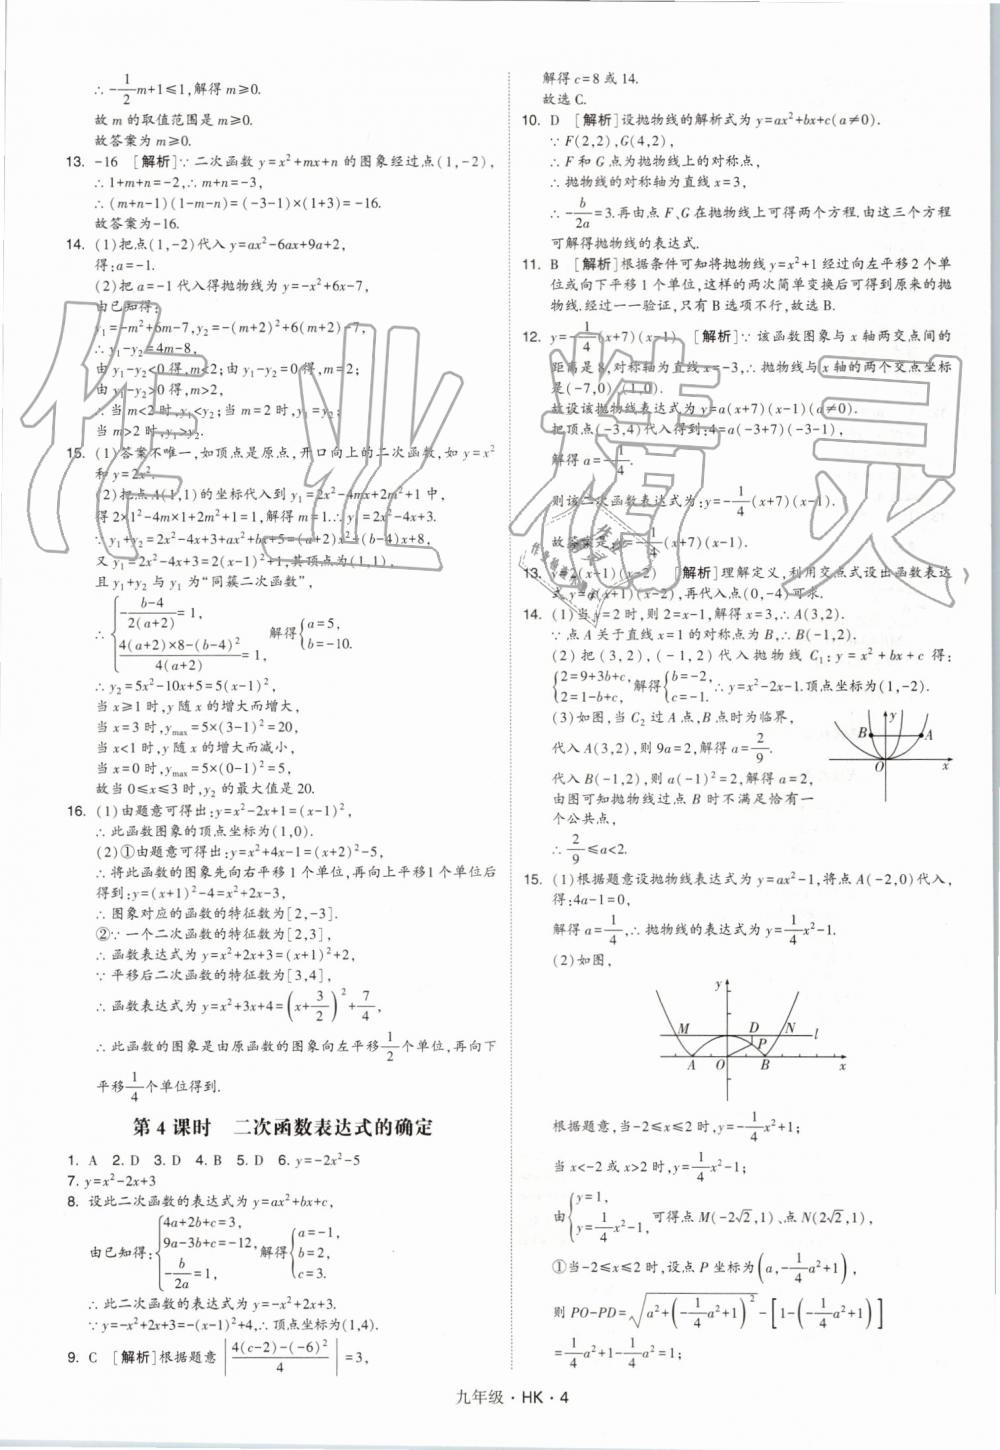 ∴ -1/2m+1≤1,解得 m≥0.
故 m 的取值范围是 m≥0.
故答案为 m≥0.
13. -16 [解析]∵二次函数 y=x²+mx+n 的图象经过点(1,-2),
∴1+m+n=-2,∴m+n=-3,
∴(m+n-1)(1-m-n)=(-3-1)×(1+3)=-16.
故答案为-16.
14. (1)把点(1,-2)代入 y=ax²-6ax+9a+2,
得:a=-1.
(2)把 a=-1 代入得抛物线为 y=-x²+6x-7,
由已知得:
y₁=-m²+6m-7,y₂=-(m+2)²+6(m+2)-7,
∴y₁-y₂=4m-8,
由 y₁-y₂<0 得,m<2;由 y₁-y₂=0 得,m=2;
由 y₁-y₂>0 得,m>2,
∴当 m<2 时,y₁<y₂;当 m=2 时,y₁=y₂;
当 m>2 时,y₁>y₂.
15. (1)答案不唯一,如顶点是原点,开口向上的二次函数,如 y=x²
和 y=2x².
(2)把点 A(1,1)的坐标代入到 y₁=2x²-4mx+2m²+1 中,
得 2×1²-4m×1+2m²+1=1,解得 m=1.∴y₁=2x²-4x+3.
∵y₁+y₂=2x²-4x+3+ax²+bx+5=(a+2)x²+(b-4)x+8,
又 y₁=2x²-4x+3=2(x-1)²+1,其顶点为(1,1),
且 y₁+y₂ 与 y₁ 为“同簇二次函数”,
∴{-(b-4)/2(a+2)=1, 4(a+2)×8-(b-4)²/4(a+2)=1, 解得{a=5, b=-10.
∴y₂=5x²-10x+5=5(x-1)²,
当 x≥1 时,y 随 x 的增大而增大,
当 x=3 时,y_max=5×(3-1)²=20,
当 x<1 时,y 随 x 的增大而减小,
当 x=0 时,y_max=5×(0-1)²=5,
故当 0≤x≤3 时,y₂ 的最大值是 20.
16. (1)由题意可得出:y=x²-2x+1=(x-1)²,
∴此函数图象的顶点坐标为(1,0).
(2)①由题意可得出:y=x²+4x-1=(x+2)²-5,
∴将此函数的图象先向右平移 1 个单位,再向上平移 1 个单位后
得到:y=(x+1)²-4=x²+2x-3,
∴图象对应的函数的特征数为[2,-3].
②∵一个二次函数的特征数为[2,3],
∴函数表达式为 y=x²+2x+3=(x+1)²+2,
∵平移后二次函数的特征数为[3,4],
∴函数表达式为 y=x²+3x+4=(x+3/2)²+7/4,
∴此函数的图象是由原函数的图象向左平移1/2个单位,再向下
平移1/4个单位得到.
第 4 课时 二次函数表达式的确定
1. A 2. D 3. D 4. B 5. D 6. y=-2x²-5
7. y=x²-2x+3
8. 设此二次函数的表达式为 y=ax²+bx+c,
由已知得:{4a+2b+c=3, 9a-3b+c=-12, -b/2a=1, 解得{a=-1, b=2, c=3.
∴此二次函数的表达式为 y=-x²+2x+3.
∵y=-x²+2x+3=-(x-1)²+4,∴顶点坐标为(1,4).
9. C [解析]根据题意|4(c-2)-(-6)²/4|=3,
解得 c=8 或 14.
故选 C.
10. D [解析]设抛物线的解析式为 y=ax²+bx+c(a≠0).
∵F(2,2),G(4,2),
∴F 和 G 点为抛物线上的对称点,
∴抛物线的对称轴为直线 x=3,
∴-b/2a=3.再由点 F、G 在抛物线上可得两个方程.由这三个方程
可解得抛物线的表达式.
11. B [解析]根据条件可知将抛物线 y=x²+1 经过向左平移 2 个单
位或向下平移 1 个单位,这样的两次简单变换后可得到原来的抛
物线.经过一一验证,只有 B 选项不行,故选 B.
12. y=-1/4(x+7)(x-1) [解析]∵该函数图象与 x 轴两交点间的
距离是 8,对称轴为直线 x=-3,∴抛物线与 x 轴的两个交点坐标
是(-7,0),(1,0).
故设该抛物线表达式为 y=a(x+7)(x-1)(a≠0).
把顶点(-3,4)代入得到:4=a(-3+7)(-3-1),
解得 a=-1/4.
则该二次函数表达式为:y=-1/4(x+7)(x-1).
故答案是 y=-1/4(x+7)(x-1).
13. y=2(x+1)(x-2) [解析]理解定义,利用交点式设出函数表达
式 y=a(x+1)(x-2),再代入点(0,-4)可求.
14. (1)当 y=2 时,则 2=x-1,解得 x=3,∴A(3,2).
∵点 A 关于直线 x=1 的对称点为 B,∴B(-1,2).
(2)把(3,2),(-1,2)代入抛物线 C₁:y=x²+bx+c 得:
{2=9+3b+c, 2=1-b+c, 解得{b=-2, c=-1. ∴y=x²-2x-1.顶点坐标为(1,-2).
(3)如图,当 C₂ 过 A 点,B 点时为临界,
代入 A(3,2),则 9a=2,解得 a=2/9.
代入 B(-1,2),则 a(-1)²=2,解得 a=2,
由图可知抛物线过点 B 时不满足恰有一
个公共点,
∴2/9≤a<2.
y
B A
O x
15. (1)根据题意设抛物线表达式为 y=ax²-1,将点 A(-2,0)代入,
得:4a-1=0,
解得 a=1/4,∴抛物线的表达式为 y=1/4x²-1.
(2)如图,
y
M D N l
P
A O B x
根据题意,当-2≤x≤2 时,y=-1/4x²+1;
当 x<-2 或 x>2 时,y=1/4x²-1;
由{y=1, y=1/4x²-1, 可得点 M(-2√2,1)、点 N(2√2,1),
①当-2≤x≤2 时,设点 P 坐标为(a,-1/4a²+1),
则 PO-PD=√(a²+(-1/4a²+1)²)-[1-(-1/4a²+1)]
=1/4a²+1-1/4a²=1;
九年级·HK·4
作业精灵